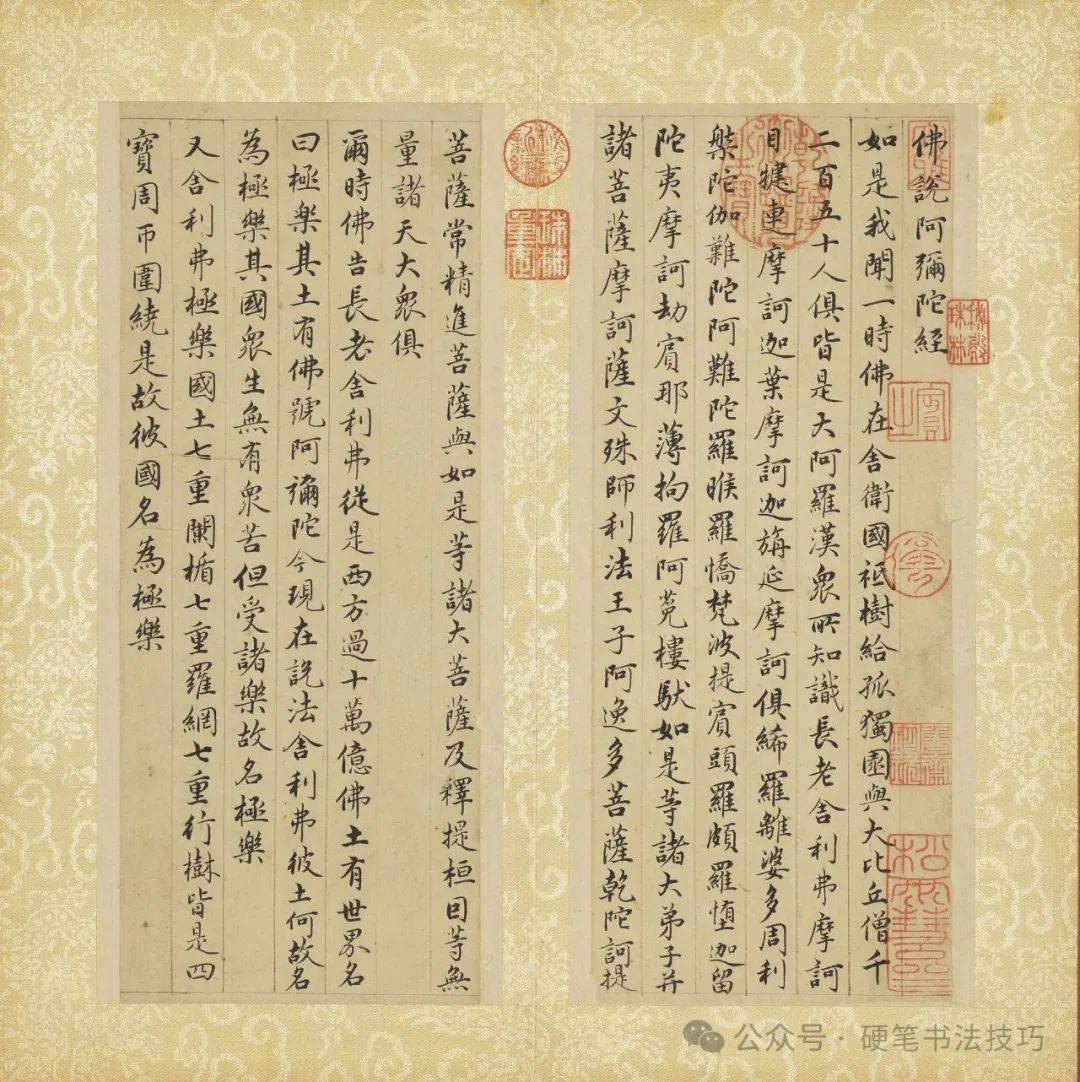 佛說阿彌陀經
如是我聞一時佛在舍衛國祇樹給孤獨園與大比丘僧千
二百五十人俱皆是大阿羅漢衆所知識長老舍利弗摩訶
目揵連摩訶迦葉摩訶迦旃延摩訶俱絺羅離婆多周利
槃陀伽難陀阿難陀羅睺羅憍梵波提賓頭羅頗羅墮迦留
陀夷摩訶劫賓那薄拘羅阿㝹樓馱如是等諸大弟子并
諸菩薩摩訶薩文殊師利法王子阿逸多菩薩乾陀訶提
菩薩常精進菩薩與如是等諸大菩薩及釋提桓因等無
量諸天大衆俱
爾時佛告長老舍利弗從是西方過十萬億佛土有世界名
曰極樂其土有佛號阿彌陀今現在說法舍利弗彼土何故名
為極樂其國衆生無有衆苦但受諸樂故名極樂
又舍利弗極樂國土七重闌楯七重羅網七重行樹皆是四
寶周帀圍繞是故彼國名為極樂
公众号·硬笔书法技巧